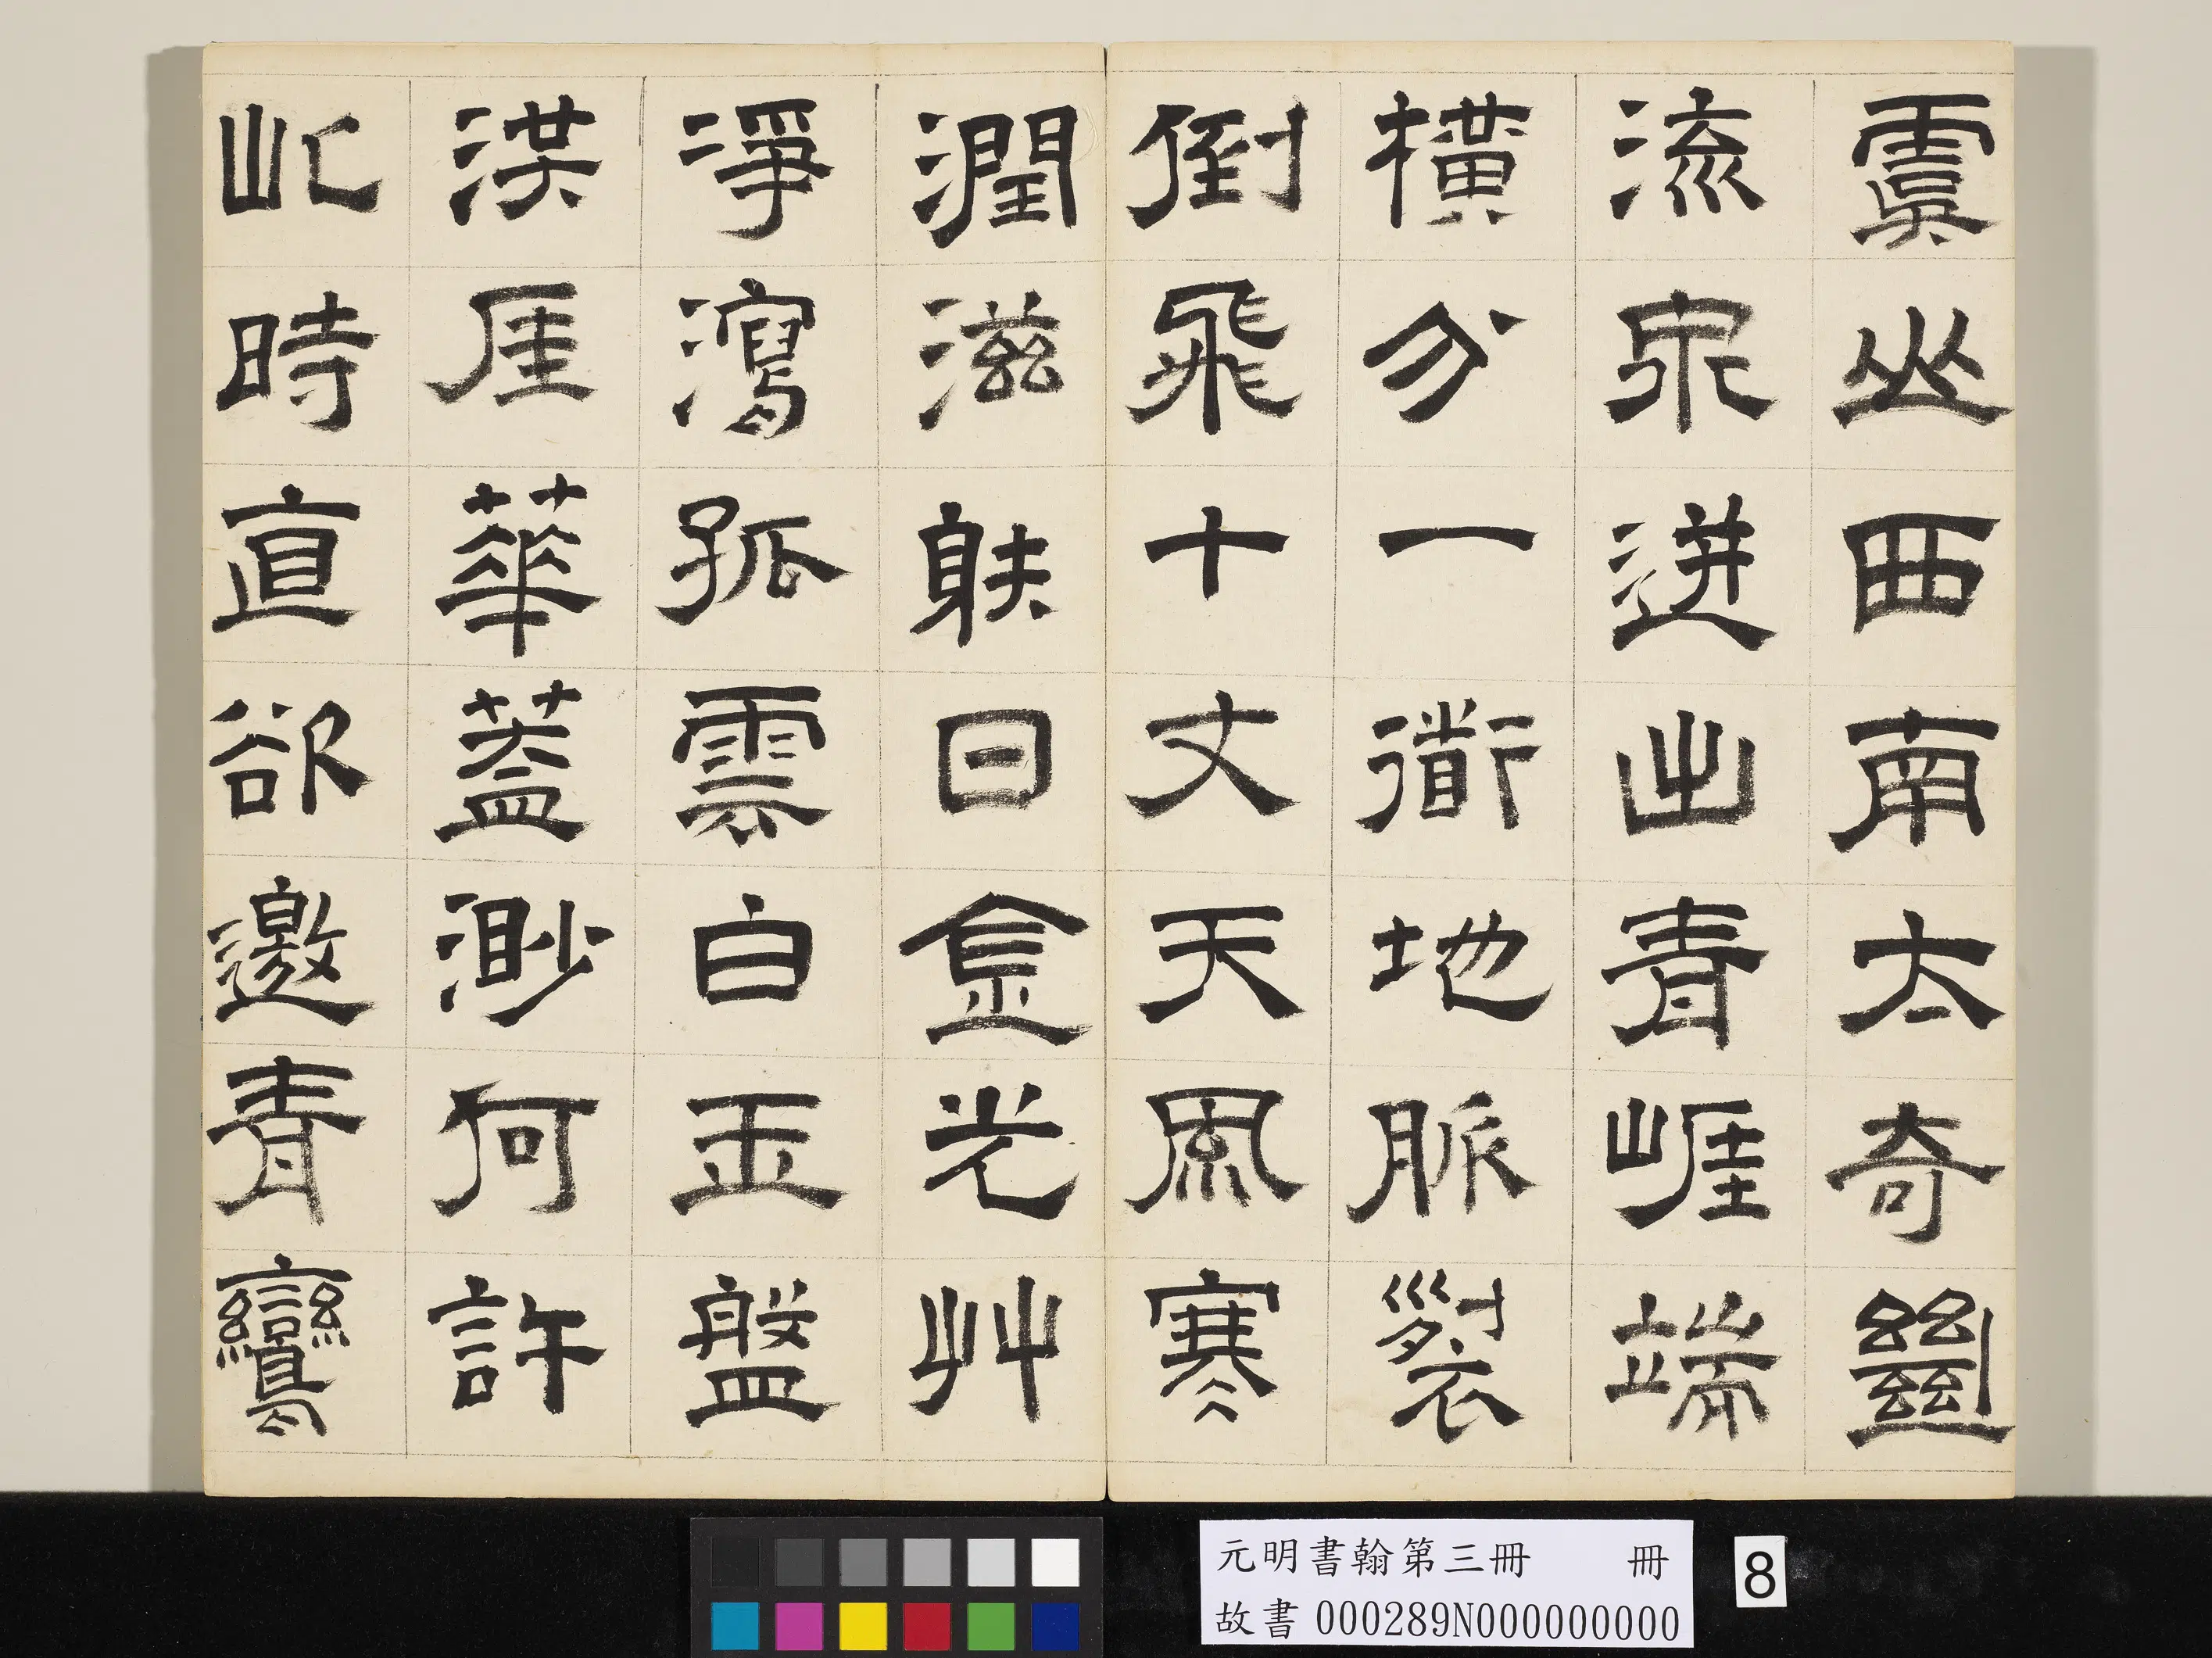 虞山西南太奇𢇍
流泉迸出青崕端
橫分一衜地脈裂
倒飛十丈天風寒
潤滋䠶日金光艸
淨瀉孤雲白玉盤
洪厓華蓋渺何許
此時直欲邀青鸞
元明書翰第三冊 冊
故書 000289N000000000
8